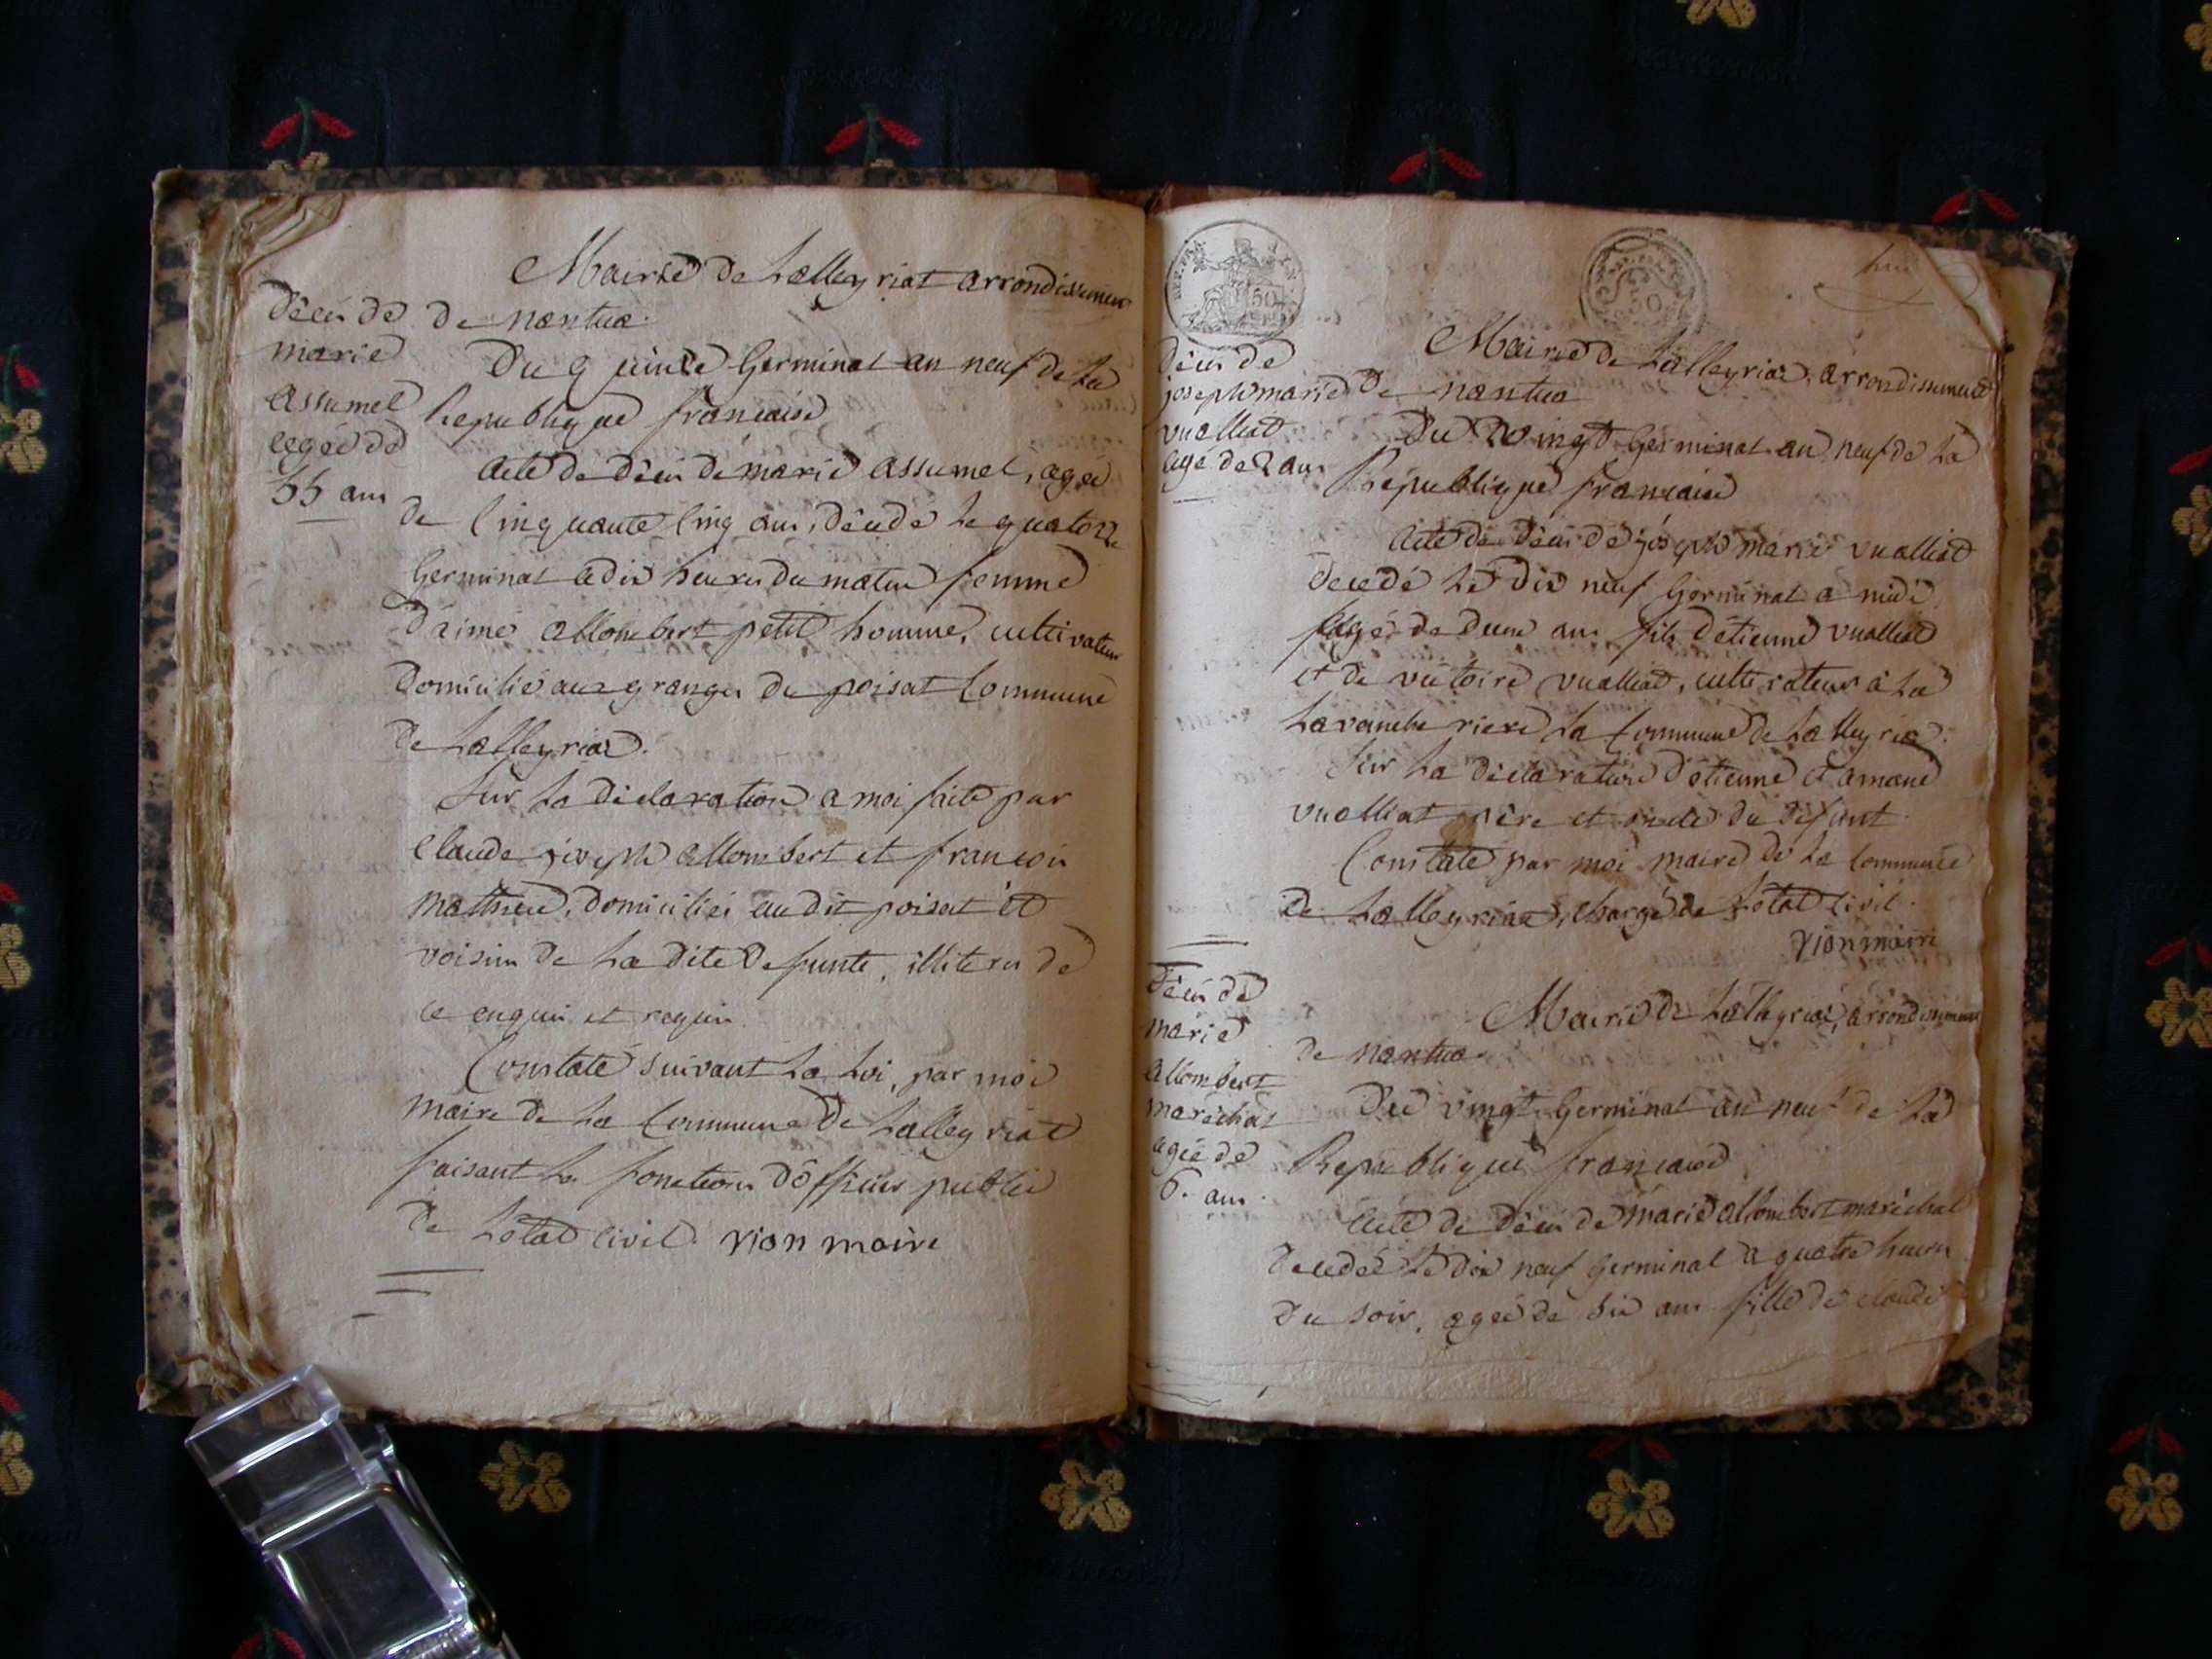 Mairie de Lalleyriat arrondissement
de nantua.
décès de
marie
assumel
agée de
55 ans
Du quinze Germinal an neuf de La
Republique francaise
acte de décès de marie assumel, agée
de Cinquante Cinq ans, décédé le quatorze
Germinal a dix heures du matin femme
d'aimé allombert petit homme, cultivateur
domicilié aux granges du poisat Commune
de Lalleyriat.
Sur La déclaration a moi faite par
Claude joseph allombert et francois
mathieu, domiciliés au dit poisat et
voisins de La dite defunte, illiterés de
ce enquis et requis
Constaté suivant La Loi, par moi
maire de La Commune de Lalleyriat
faisant Les fonctions d'officier public
de L'état Civil. vion maire
REP. FRA.
50
Mairie de Lalleyriat, arrondissement
de nantua
décès de
joseph marie
vualliat
agé de 2 ans
Du vingt Germinal an neuf de La
République francaise
acte de décès de joseph marie vualliat
decedé Le dix neuf Germinal a midi
agé de deux ans fils d'étienne vualliat
et de victoire vualliat, cultivateurs à La
Commune de Lalleyriat.
Sur La déclaration d'étienne et amand
vualliat père et oncle du défunt
Constaté par moi maire de La Commune
de Lalleyriat, chargé de L'état Civil.
vion maire
décès de
marie
allombert
maréchal
agée de
6. ans.
Mairie de Lalleyriat, arrondissement
de nantua
Du vingt Germinal an neuf de La
Republique francaise
acte de décès de marie allombert maréchal
decedée Le dix neuf Germinal a quatre heures
du soir, agée de six ans fille de claude